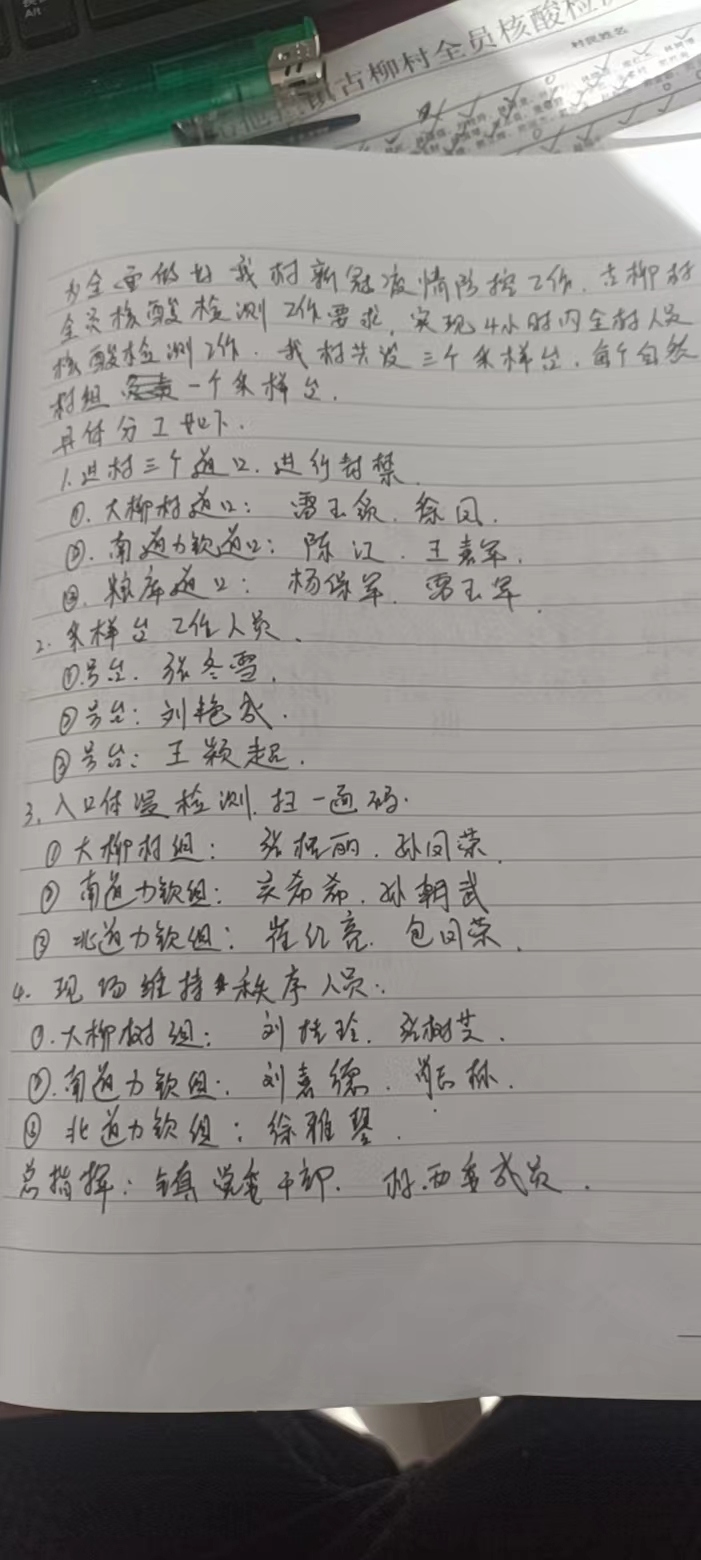 Alt
古柳村全员核酸检
村民姓名
为全面做好我村新冠疫情防控工作.古柳村
全员核酸检测工作要求,实现4小时内全村人员
核酸检测工作.我村共设三个采样台,每个自然
村组 一个采样台.
具体分工如下.
1.进村三个道口.进行封禁.
①.大柳村道口: 雷玉钦.徐凤.
②.南道力钦道口: 陈江.王嘉军.
③.粮库道口: 杨保军.雷玉军.
2.采样台工作人员.
①号台.张冬雪.
②号台:刘艳武.
③号台:王颖超.
3.入口体温检测.扫一通码.
①大柳村组: 张桂丽.孙凤荣.
②南道力钦组: 希希.孙朝武
③北道力钦组: 崔红亮.包凤荣.
4.现场维持秩序人员.
①.大柳树组: 刘桂玲.张树芝.
②.南道力钦组.刘嘉德. 林.
③北道力钦组:徐雅琴.
总指挥:镇党委干部. 村两委成员.